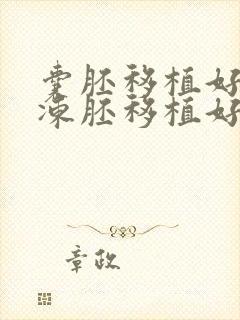 囊胚移植好
冻胚移植好
章政